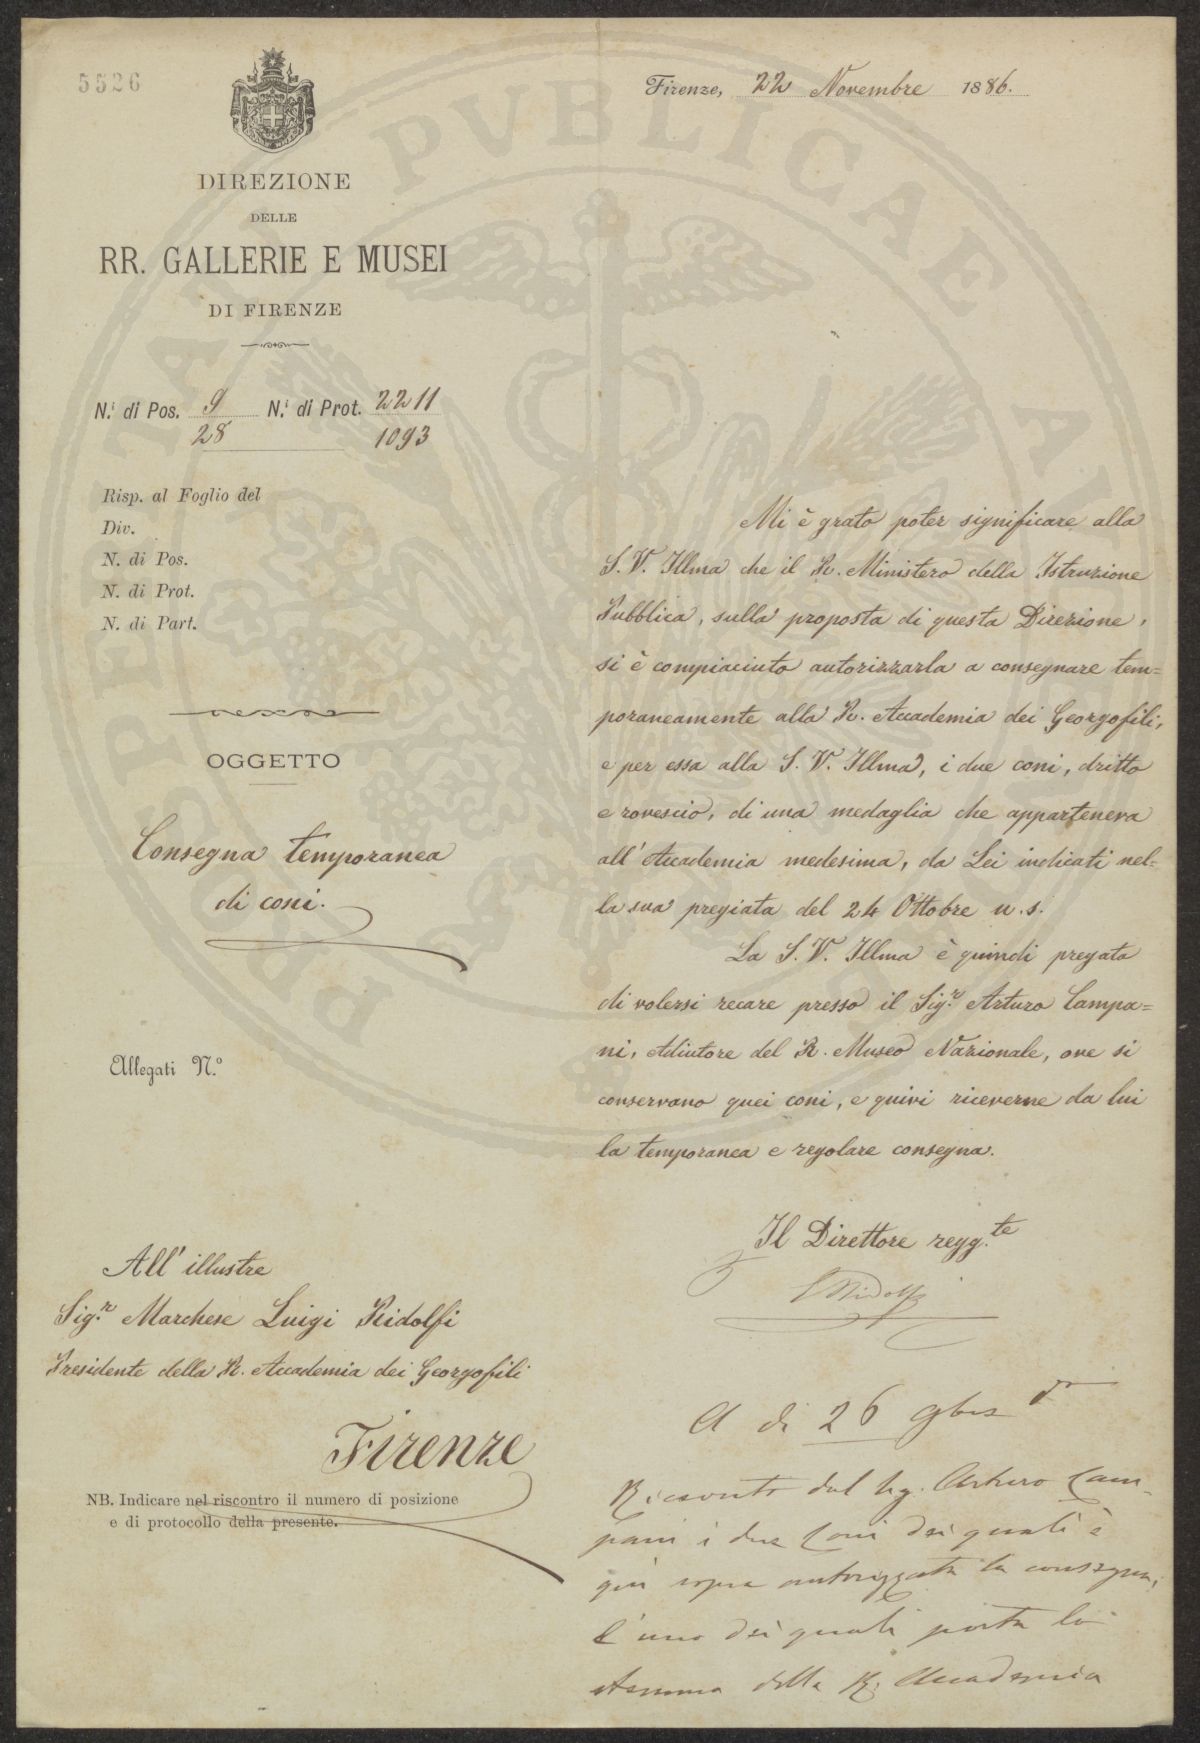 5526
Firenze, 22 Novembre 1886.
DIREZIONE
DELLE
RR. GALLERIE E MUSEI
DI FIRENZE
N.i di Pos. 9 N.i di Prot. 2211
28 1093
Risp. al Foglio del
Div.
N. di Pos.
N. di Prot.
N. di Part.
OGGETTO
Consegna temporanea
di coni.
Allegati N.o
Mi è grato poter significare alla
S. V. Illma che il R. Ministero della Istruzione
Pubblica, sulla proposta di questa Direzione,
si è compiaciuto autorizzarla a consegnare tem=
poraneamente alla R. Accademia dei Georgofili,
e per essa alla S. V. Illma, i due coni, dritto
e rovescio, di una medaglia che apparteneva
all'Accademia medesima, da Lei indicati nel=
la sua pregiata del 24 Ottobre u. s.
La S. V. Illma è quindi pregata
di volersi recare presso il Sigr. Arturo Campa=
ni, Adiutore del R. Museo Nazionale, ove si
conservano quei coni, e quivi riceverne da lui
la temporanea e regolare consegna.
Il Direttore regg.te
Ridolfi
All'illustre
Sigr. Marchese Luigi Ridolfi
Presidente della R. Accademia dei Georgofili
Firenze
NB. Indicare nel riscontro il numero di posizione
e di protocollo della presente.
A di 26 9bre
Ricevuto dal Sig. Arturo Cam-
pani i due Coni dei quali è
qui sopra autorizzata la consegna,
l'uno dei quali porta lo
stemma della R. Accademia
PVBLICAE